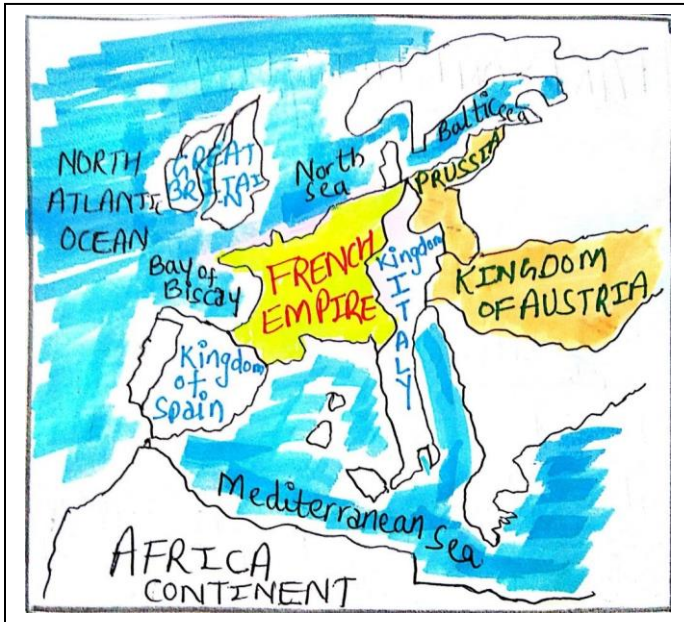 NORTH
ATLANTIC
OCEAN
GREAT
BRITAI
-N
North
sea
Baltic
sea
PRUSSIA
Bay of
Biscay
FRENCH
EMPIRE
Kingdom
ITALY
KINGDOM
OF AUSTRIA
Kingdom
of
Spain
Mediterranean Sea
AFRICA
CONTINENT